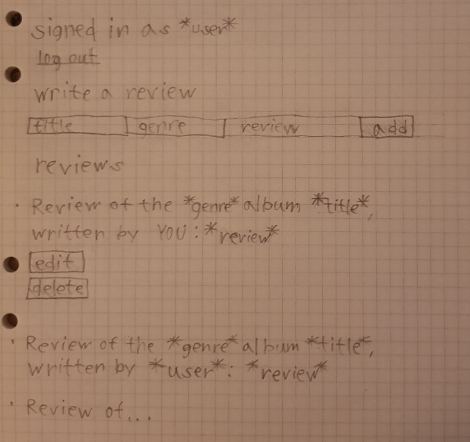 signed in as *user*
log out
write a review
title genre review add
reviews
· Review of the *genre* album *title*,
written by YOU: *review*
edit
delete
· Review of the *genre* album *title*,
written by *user*: *review*
· Review of...